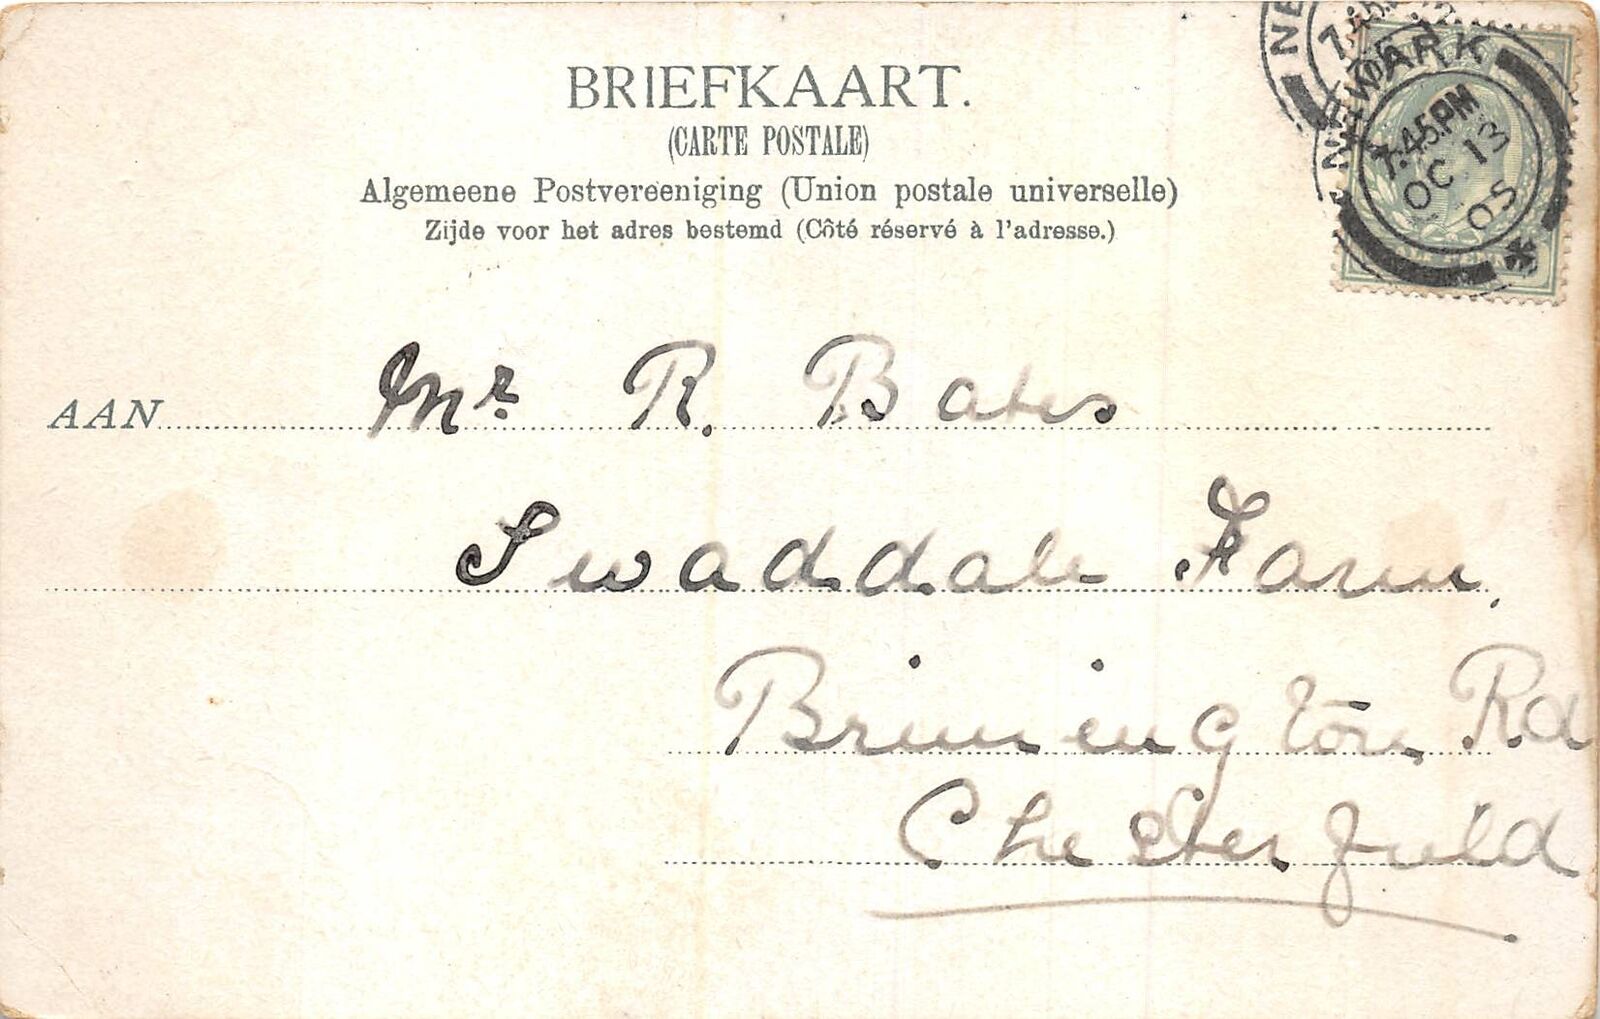 BRIEFKAART.
(CARTE POSTALE)
Algemeene Postvereeniging (Union postale universelle)
Zijde voor het adres bestemd (Côté réservé à l'adresse.)
NEWARK
7.45PM
OC 13
05
AAN Mr. R. Bates
Swaddale Farm,
Brimington Rd
Chesterfield